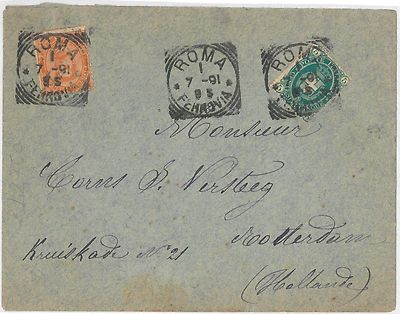 ROMA
1
7 - 91
8 S
* FERROVIA *
ROMA
1
7 - 91
8 S
* FERROVIA *
ROMA
Monsieur
Corns S. Versteeg
Kruiskade No. 21
Rotterdam
(Hollande)